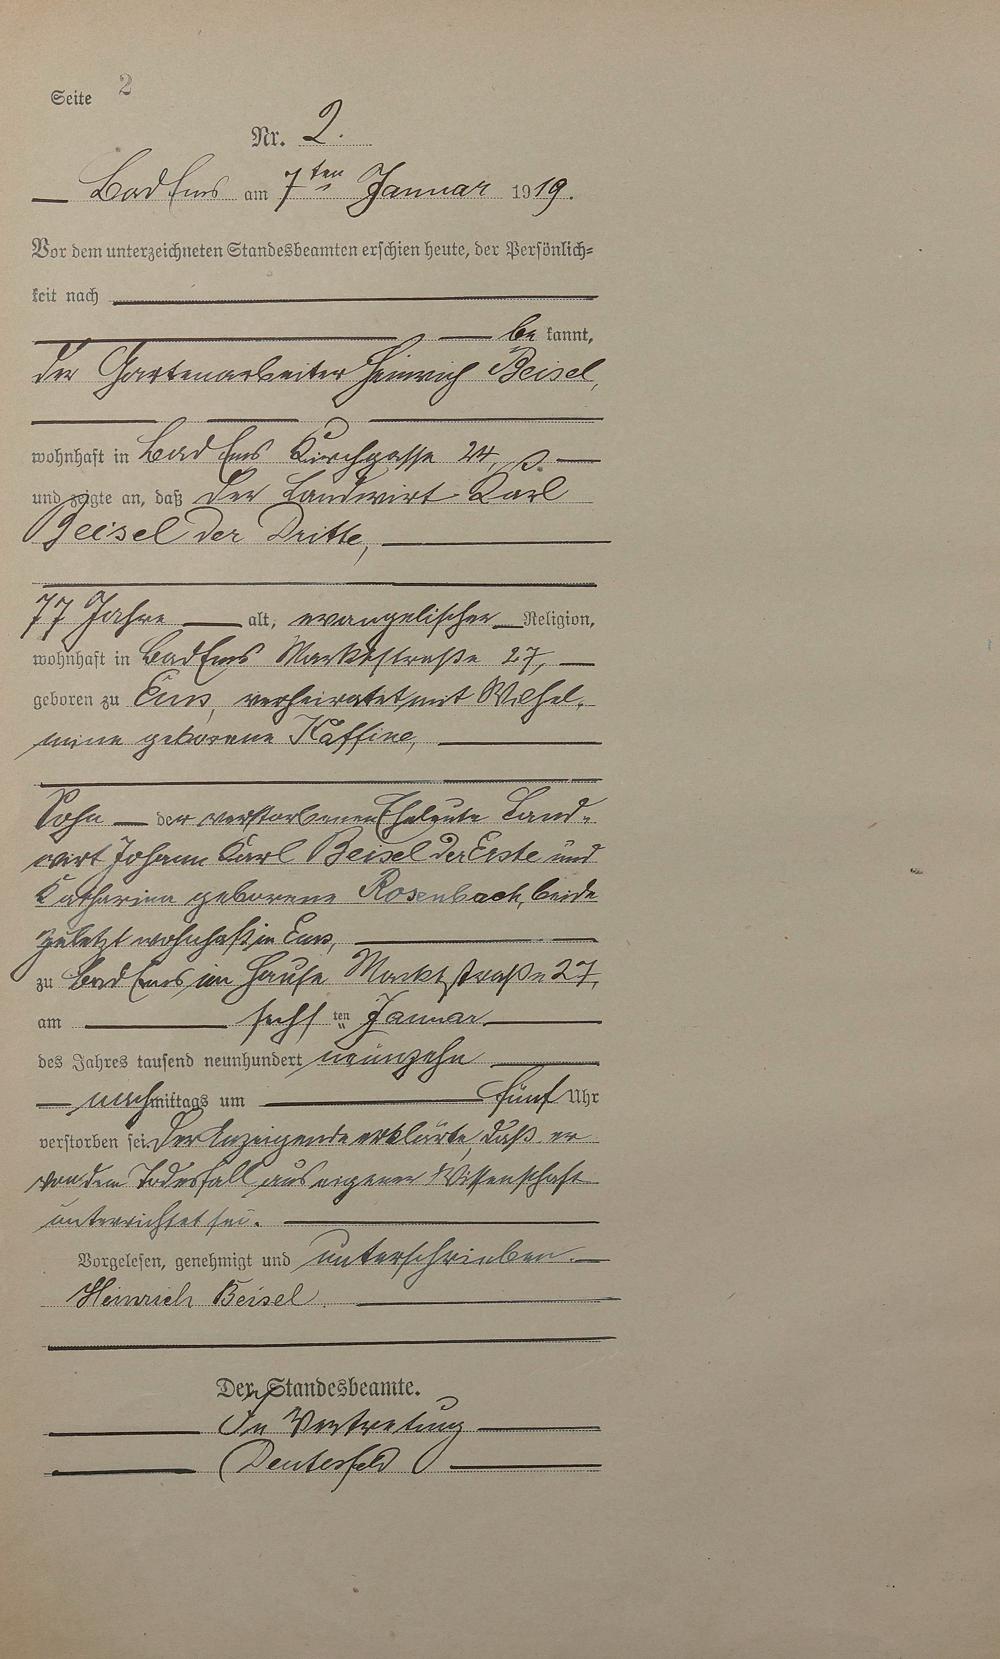 Seite 2
Nr. 2.
Bad Ems am 7ten Januar 1919.
Vor dem unterzeichneten Standesbeamten erschien heute, der Persönlich-
keit nach
be kannt,
der Gartenarbeiter Heinrich Beisel,
wohnhaft in Bad Ems Kirchgasse 24,
und zeigte an, daß der Landwirt Karl
Beisel der Dritte,
77 Jahre alt, evangelischer Religion,
wohnhaft in Bad Ems Marktstraße 27,
geboren zu Ems, verheiratet mit Wilhel-
mine geborene Kaffine,
Sohn der verstorbenen Eheleute Land-
wirt Johann Karl Beisel der Erste und
Katharina geborene Rosenbach, beide
zuletzt wohnhaft in Ems,
zu Bad Ems im Hause Marktstraße 27,
am sechsten Januar
des Jahres tausend neunhundert neunzehn
nachmittags um fünf Uhr
verstorben sei. Der Anzeigende erklärte, daß er
von dem Todesfall aus eigener Wissenschaft
unterrichtet sei.
Vorgelesen, genehmigt und unterschrieben.
Heinrich Beisel
Der Standesbeamte.
In Vertretung